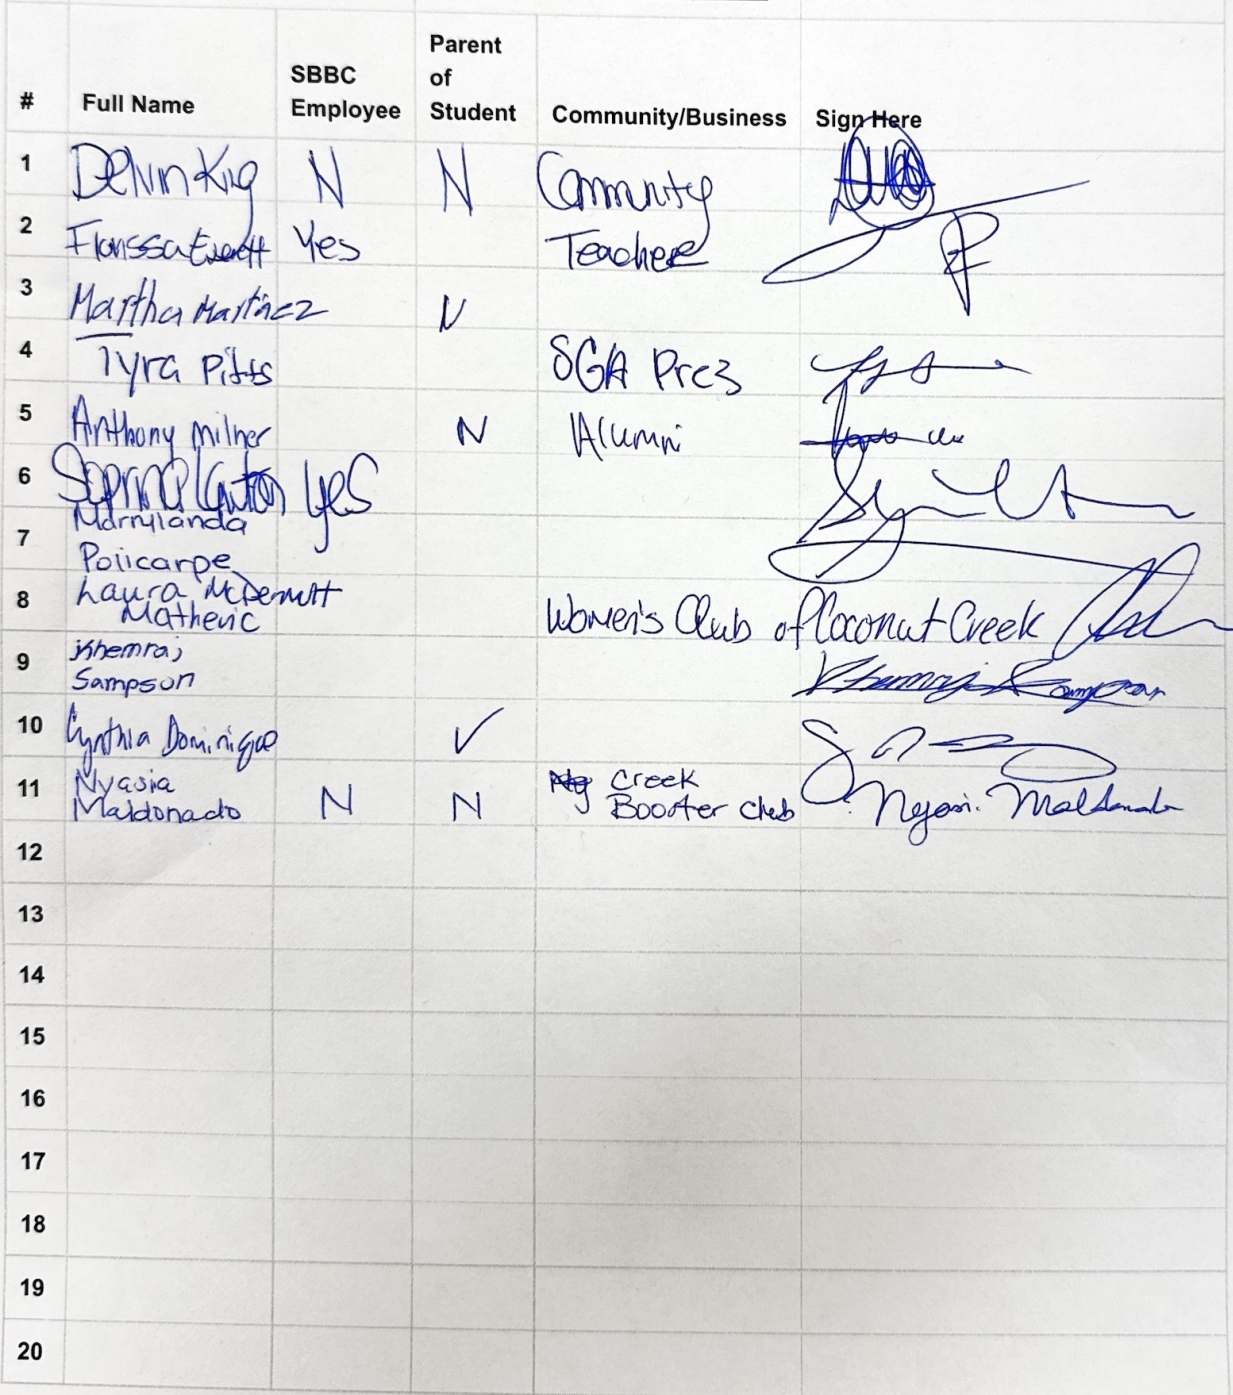 # Full Name SBBC Employee Parent of Student Community/Business Sign Here
1 Delvin King N N Community
2 Florissa Everett Yes Teacher
3 Martha Martinez N
4 Tyra Pitts SGA Prez
5 Anthony Milner N Alumni
6 Yes
7 Marnylanda
Policarpe
8 Laura McDermott
Matheric Women's Club of Coconut Creek
9 Khemraj
Sampson Khemraj Sampson
10 Cynthia Dominique ✓
11 Nyasia
Maldonado N N Creek
Booster Club Nyasi. Maldonado
12
13
14
15
16
17
18
19
20